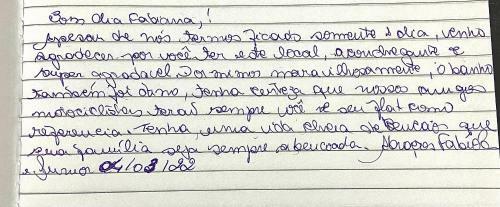 Bom dia Fabiana,!
Apesar de nós termos ficado somente 1 dia, venho
agradecer por você ter este local, aconchegante e
super agradavel. Dormimos maravilhosamente, o banho
também foi otimo, tenha certeza que nossos amigos
motociclistas terão sempre você e seu flat como
referencia. Tenha uma vida cheia de bençãos que
sua família seja sempre abençoada. Abraços Fabíola
e Junior 04/03/22